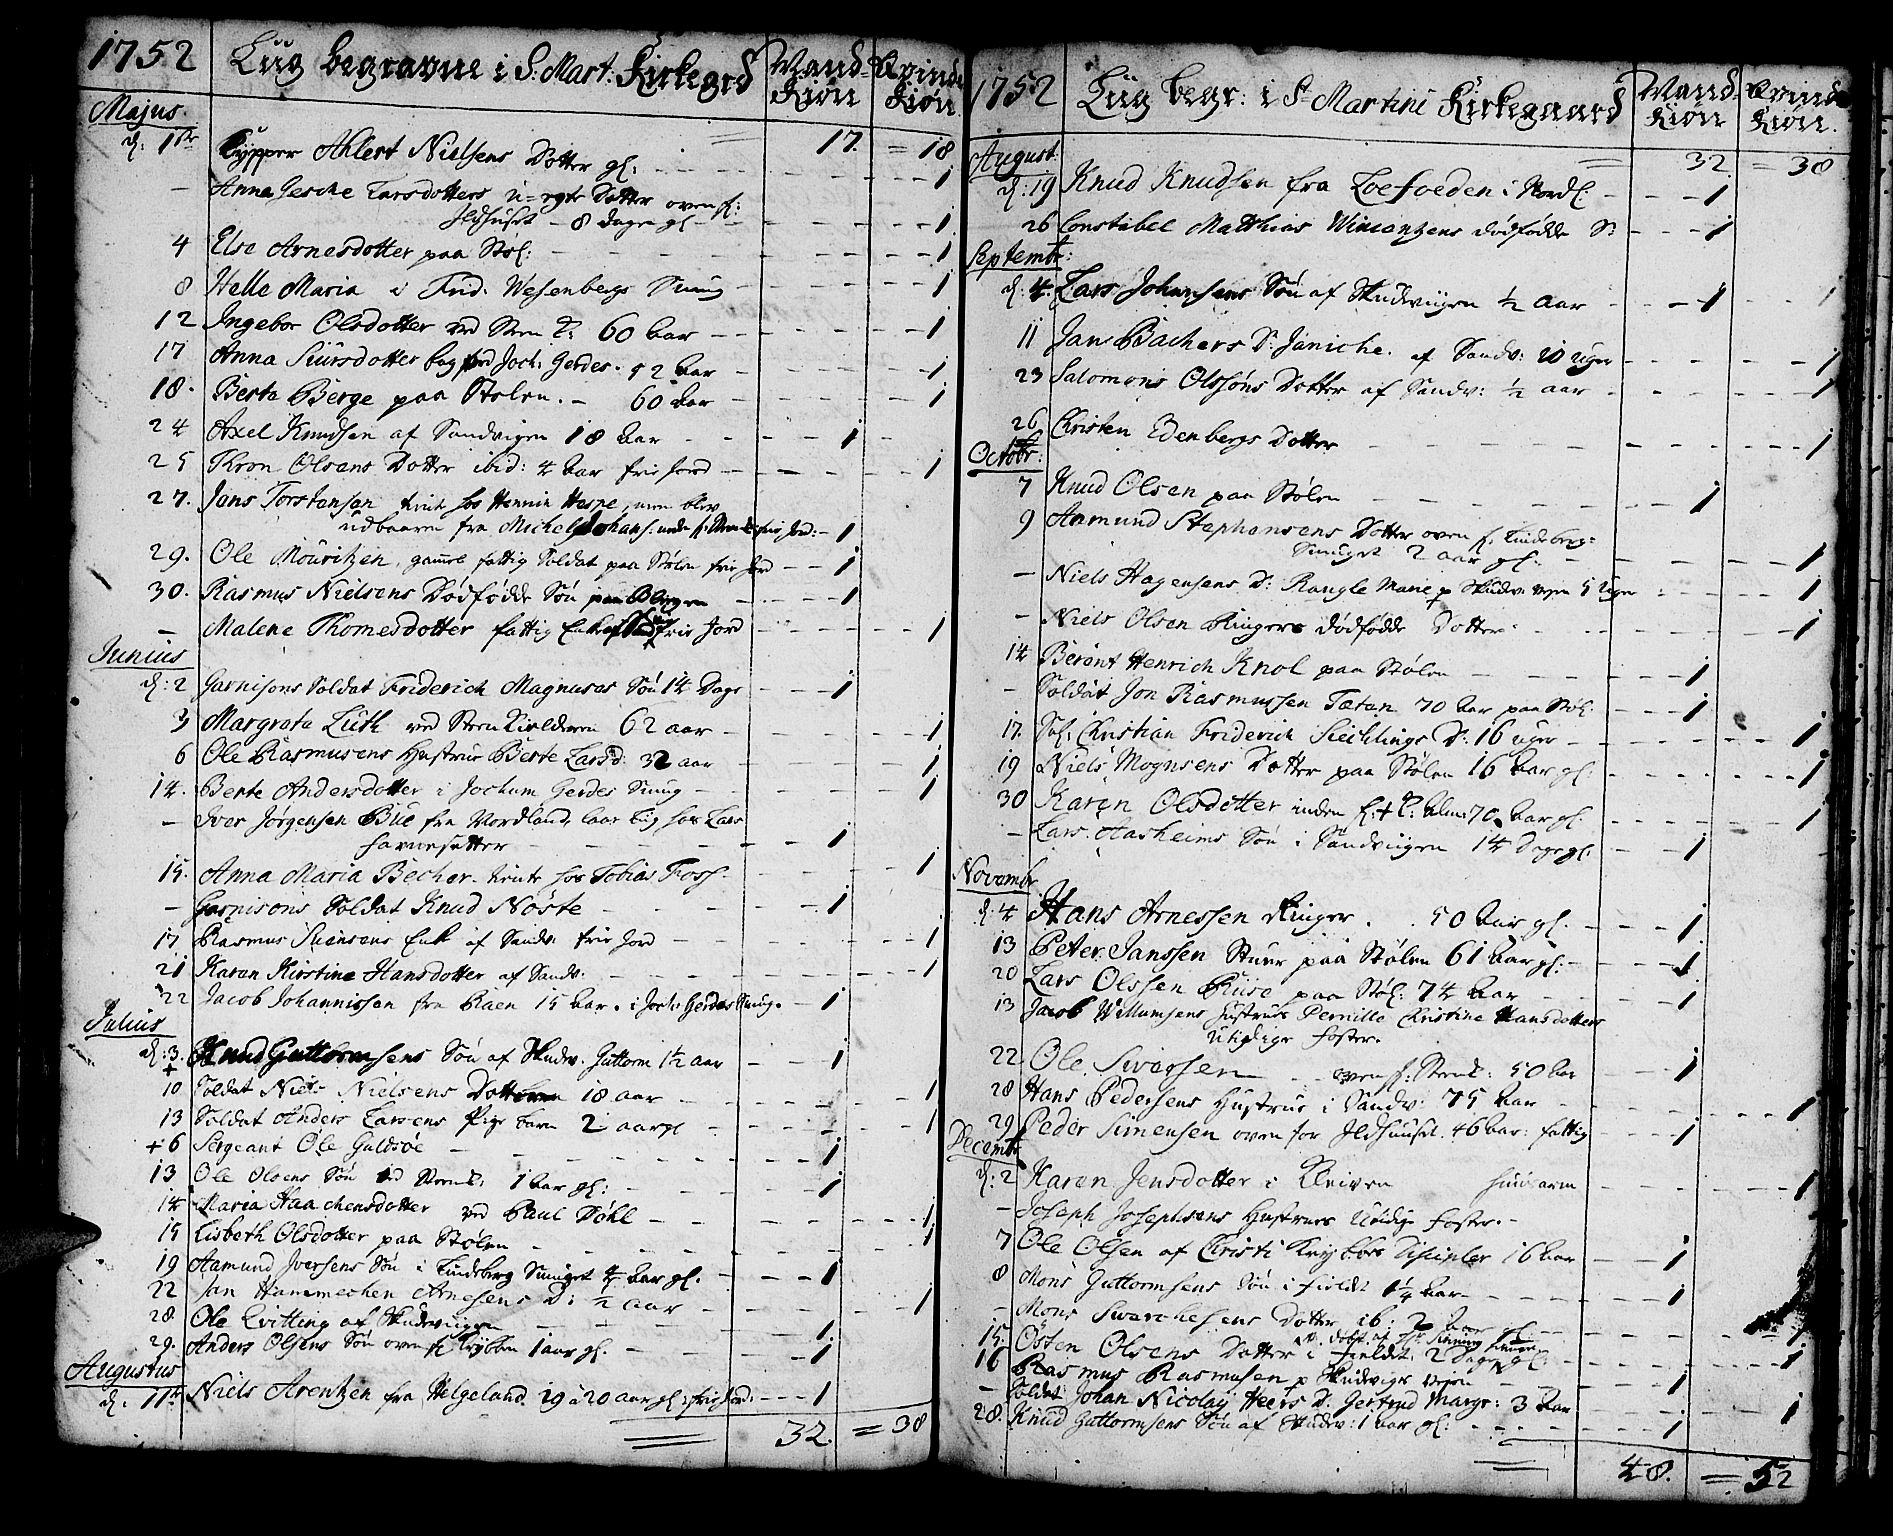 1752 Liig begravne i S: Mart: Kirkegrd Mand- Kiøn Qvinde Kiøn
Majus.
17. = 18
d: 1ste Kypper Ahlert Nielsens Dotter gl: - 1
- Anna Gesche Larsdotters u=egte Dotter oven f:
Ildhuset - 8 dage gl - 1
4 Else Arnesdotter paa Støl: - 1
8 Helle Maria i Frid: Wesenbergs Smug - 1
12 Ingebor Olsdotter ved Steen K: 60 aar - 1
17 Anna Siursdotter bag ved Joch: Gerdes. 52 aar - 1
18. Berta Berge paa Stølen. - 60 aar - 1
24 Axel Knudsen af Sandvigen 18 aar - 1
25 Olsens Dotter ibid: 4 aar frie Jord - 1
27. Jans Torstensen hos Hennin Hespe, men blev
udbaaren fra Michel Johans: frie Jord: - 1
29. Ole Mouritzen, gammel fattig Soldat paa Stølen frie Jord - 1
30. Rasmus Nielsens Dødfødde Søn - 1
- Malene Thomesdotter fattig Enke frie Jord - 1
Junius
d: 2 Garnisons Soldat Friderich Magnuses Søn 14 Dage - 1
3 Margreta Luth ved Steen Kielderen 62 aar - 1
6 Ole Rasmusens Hustrue Berte Larsd: 32 aar - 1
14. Berte Andersdotter i Jochum Gerdes Smug - 1
- Iver Jørgensen Bue fra Nordland, laae Liig hos Lars
- 1
15. Anna Maria Becher. hos Tobias Foss. - 1
- Garnisons Soldat Knud Nøste - 1
17 Rasmus Enke af Sandv: frie Jord - 1
21 Karen Kirstine Hansdotter af Sandv: - 1
22 Jacob Johannissen fra 15 aar. i Joch: Gerdes Smug. - 1
Julius
d: 3. Knud Guttormsens Søn af Skudv. Guttorm 1½ aar - 1
+
10 Soldat Niels Nielsens Dotter 18 aar - 1
13 Soldat Anders Larsens Pige barn 2 aar gl - 1
+6 Sergeant Ole Guldsøe - 1
13 Ole Olsens Søn ved Steenk: 1 aar gl: - 1
14 Maria Haachensdotter ved Paul Døhl - 1
15 Lisbeth Olsdotter paa Stølen - 1
19 Aamund Iversens Søn i Lindeberg Smuget 4 aar gl. - 1
22 Jan Hammechen Arnesens D: ½ aar - 1
28. Ole Qvitting af Skudeviigen - 1
29. Anders Olsens Søn oven f: Krybben 1 aar gl. - 1
Augustus
d. 11te Niels Arentzen fra Helgeland 19 à 20 aar gl: frie Jord: - 1
32. = 38
1752 Liig begr: i St Martini Kirkegaard Mand- Kiøn Qvinde Kiøn.
August.
32. = 38
d: 19 Knud Knudsen fra Loefoeden i Nordl: - 1
26 Constabel Matthias Wincentzens dødfødde S: - 1
Septembr:
d: 4. Lars Johansens Søn af Skudeviigen ½ aar - 1
11 Jan Bachers D: Janiche. af Sandv: 10 uger - 1
23 Salomons Olssøns Dotter af Sandv: ½ aar - 1
26 Christen Edenbergs Dotter - 1
Octobr:
7 Knud Olsen paa Stølen - 1
9 Aamund Stephensens Dotter oven f. Lindeberg=
Smuget 2 aar gl. - 1
- Niels Hagensens D: Rangle Marie p Skudv: veyen 5 Uger - 1
- Niels Olsen Ringers dødfødde Dotter. - 1
14 Berent Henrich Knol paa Stølen - 1
- Soldat Jon Rasmussen Tætan 70 aar paa Støl: - 1
17. Sol: Christian Friderich Siechlings D: 16 uger - 1
19 Niels Mognsens Dotter paa Stølen 16 aar gl: - 1
30 Karen Olsdotter inden 70 aar gl - 1
- Lars. Aasheims Søn i Sandviigen 14 Dage gl: - 1
Novembr
d: 4 Hans Arnessen Ringer. 50 aar gl. - 1
13 Peter Janssen Stuur paa Stølen 61 aar gl: - 1
20 Lars Olssen paa Støl: 74 aar - 1
13 Jacob Willumsens Hustrues Pernille Christine Hansdotters
Utidige foster.
22. Ole Swersen oven f: Steenk: 50 aar - 1
28 Hans Pedersens Hustrue i Sandv: 75 aar - 1
29 Peder Simensen oven for Ildhuuset. 46 aar: fattig - 1
Decembr
d: 2 Karen Jensdotter i Kleiven Huusarm - 1
- Joseph Josephsens Hustrues Utidige foster. -
7 Ole Olsen af Christi Krybbes Disipler 16 aar - 1
8 Mons Guttormsens Søn i fieldet 1¼ aar - 1
- Mons Swerchesens Dotter ib: 2 aar gl - 1
15. Østen Olsens Dotter i fieldet 2 Dage gl: - 1
16 Rasmus Rasmusen p Skudvigs veyen - 1
- Soldat Johan Nicolay Heers D. Gertrud Margr: 3 aar - 1
28. Knud Guttormsens Søn af Skudv: 1 aar gl: - 1
48. = 52